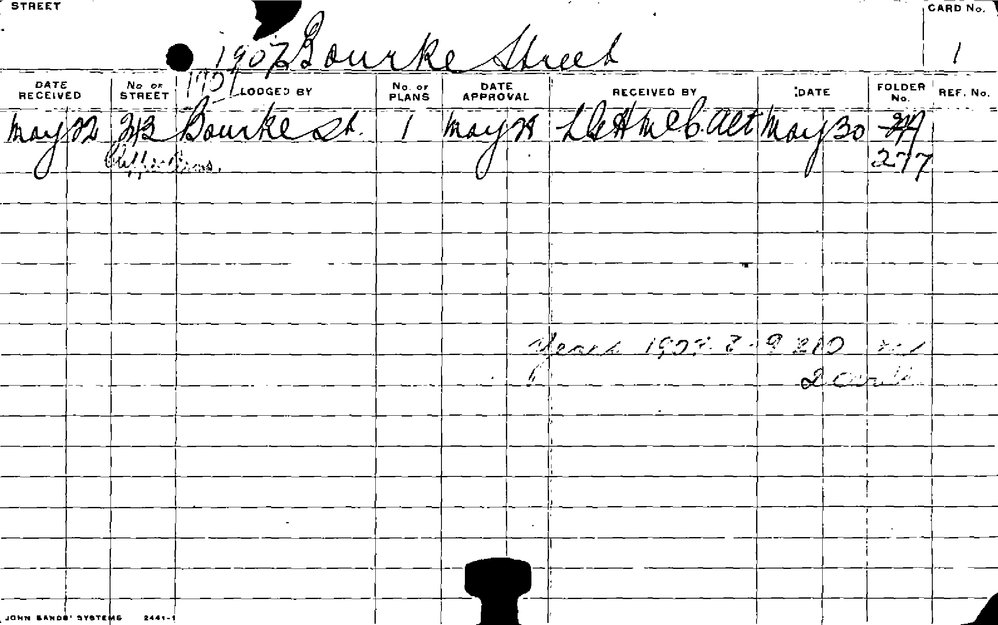 STREET
CARD No.
1907 Bourke Street
1
1907
DATE RECEIVED
No OF STREET
LODGED BY
No. OF PLANS
DATE APPROVAL
RECEIVED BY
DATE
FOLDER No.
REF. No.
May 22 Bourke St. 1 May 28 Alt May 30
277
Years 1907. 8 - 9 & 10
2 Card
JOHN SANDS' SYSTEMS 2441-1